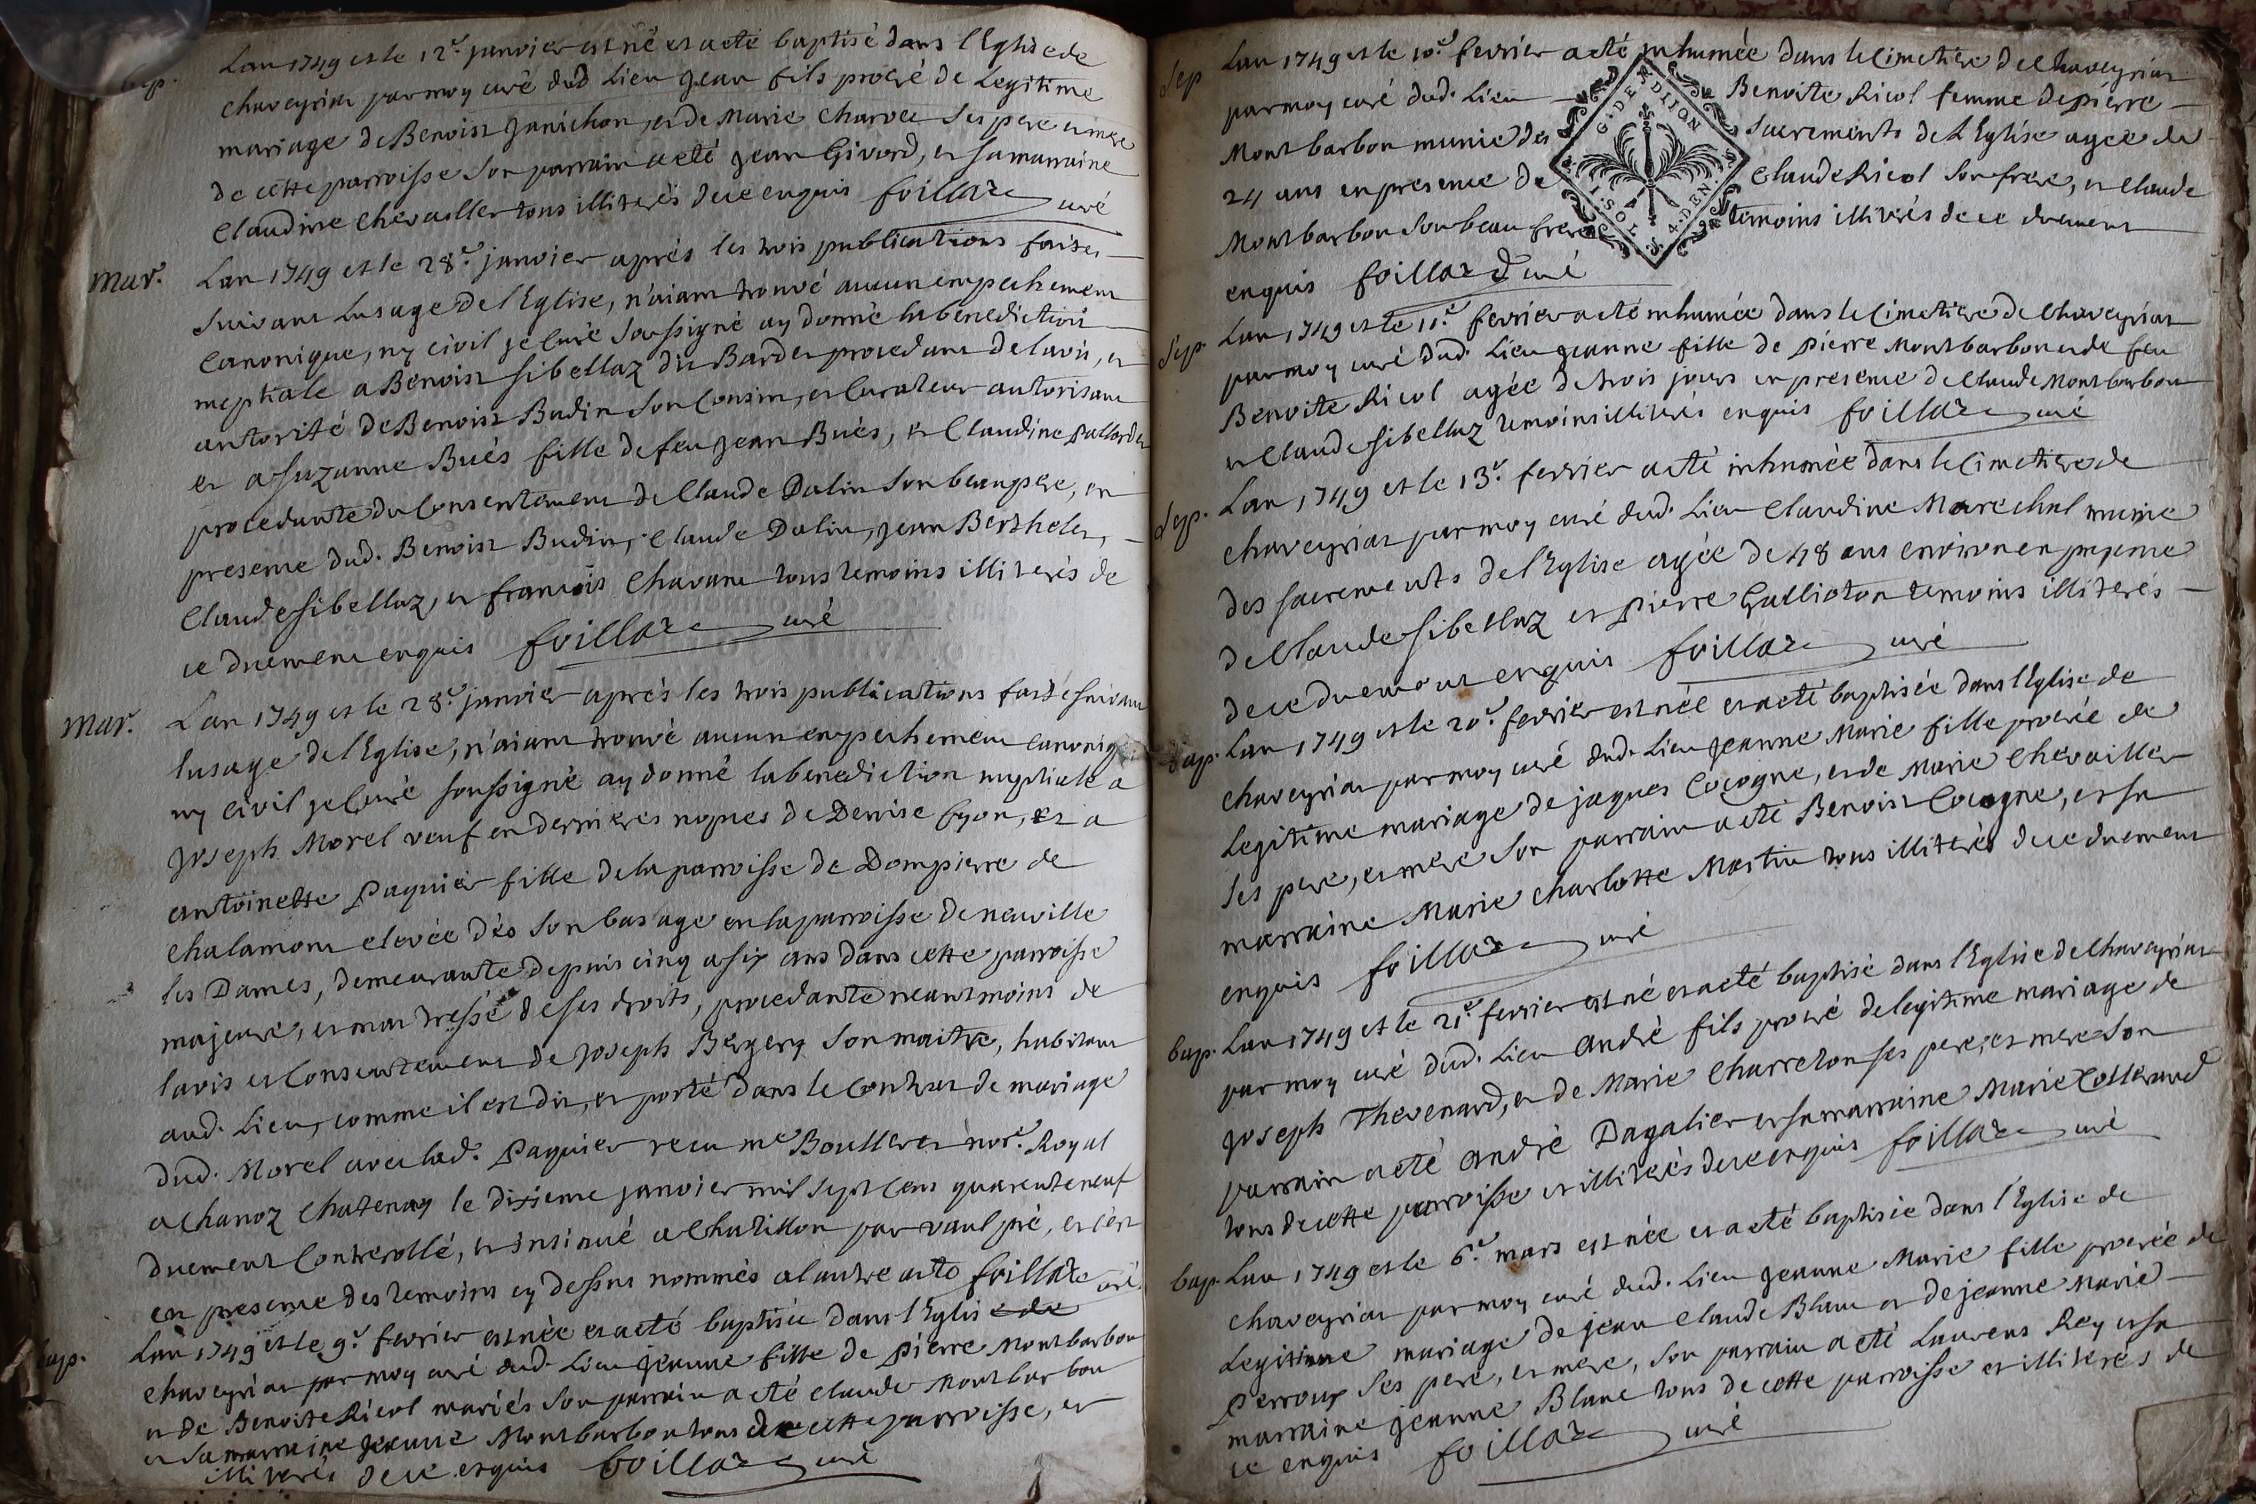 bap.
Lan 1749 et le 12.e janvier est né et a eté baptisé dans l'Eglise de
chaveyriat par moy curé dud. Lieu jean fils procréé de Legitime
mariage de Benoist janichon, et de Marie charvet ses pere et mere
de cette parroisse son parrain a eté jean Givord, et sa marraine
claudine chevailler tous illiterés de ce enquis foillaz curé
Mar.
Lan 1749 et le 28.e janvier aprés les trois publications faites
suivant Lusage de l'Eglise, n'aiant trouvé aucun empechement
canonique, ny civil je Curé soussigné ay donné la benediction
nuptiale a Benoist sibellaz dit Bardet procedant de lavis, et
autorité de Benoist Budin son Cousin, et Curateur autorisant
et a suzanne Bués fille de feu jean Bués, et Claudine
procedante du Consentement de Claude Dalin son beaupere, en
presence dud. Benoist Budin, Claude Dalin, jean Berthelet,
Claude sibellaz, et francois Chavant tous temoins illiterés de
ce duement enquis foillaz curé
Mar.
Lan 1749 et le 28.e janvier aprés les trois publications faites suivant
lusage de l'Eglise, n'aiant trouvé aucun empechement canoniq.
ny civil je Curé soussigné ay donné la benediction nuptiale a
joseph Morel veuf en dernieres nopces de Denise Gyon, et a
antoinette Paquier fille de la parroisse de Dompierre de
chalamont elevée dés son bas age en la parroisse de neuville
les Dames, demeurante depuis cinq a six ans dans cette parroisse
majeure, et maitresse de ses droits, procedante neantmoins de
lavis et Consentement de joseph Bergery son maitre, habitant
aud. Lieu, comme il est dit, et porté dans le Contrat de mariage
dud. Morel avec lad. Paquier recu me Boulleret nore. Royal
a Chanoz Chatenay le dixieme janvier mil sept Cens quarenteneuf
duement Controllé, et insinué a Chatillon par vaulpré, et c'est
en presence des temoins cy dessus nommés a l'autre acte foillaz curé
bap.
Lan 1749 et le 9.e fevrier est née et a eté baptisée dans l'Eglise de
chaveyriat par moy curé dud. Lieu jeanne fille de Pierre Montbarbon
et de Benoite Ricol mariés son parrain a eté claude Montbarbon
et sa marraine jeanne Montbarbon tous de cette parroisse, et
illiterés de ce enquis foillaz curé
G. DE DIJON
I. SOL 4. DEN
Sep
Lan 1749 et le 10.e fevrier a eté inhumée dans le Cimetiere de Chaveyriat
par moy curé dud. Lieu Benoite Ricol femme de pierre
Montbarbon munie des sacrements de l'Eglise agée de
24 ans en presence de Claude Ricol son frere, et Claude
Montbarbon son beau frere temoins illiterés de ce duement
enquis foillaz curé
Sep.
Lan 1749 et le 11.e fevrier a eté inhumée dans le Cimetiere de Chaveyriat
par moy curé dud. Lieu jeanne fille de pierre Montbarbon et de feu
Benoite Ricol agée de trois jours en presence de Claude Montbarbon
et Claude sibellaz temoins illiterés enquis foillaz curé
Sep.
Lan 1749 et le 13.e fevrier a eté inhumée dans le Cimetiere de
chaveyriat par moy curé dud. Lieu Claudine Marechal munie
des sacrements de l'Eglise agée de 48 ans environ en presence
de Claude sibellaz et pierre Gallioton temoins illiterés
de ce duement enquis foillaz curé
bap.
Lan 1749 et le 20.e fevrier est née et a eté baptisée dans l'Eglise de
chaveyriat par moy curé dud. Lieu jeanne Marie fille procréée de
Legitime mariage de jaques Cocogne, et de Marie Chevailler
ses pere, et mere son parrain a eté Benoist Cocogne, et sa
marraine Marie Charlotte Martin tous illiterés de ce duement
enquis foillaz curé
bap.
Lan 1749 et le 21.e fevrier est né et a eté baptisé dans l'Eglise de Chaveyriat
par moy curé dud. Lieu andré fils procréé de legitime mariage de
joseph Thevenard, et de Marie Charreton ses pere, et mere son
parrain a eté andré Dagalier et sa marraine Marie
tous de cette parroisse et illiterés de ce enquis foillaz curé
bap.
Lan 1749 et le 6.e mars est née et a eté baptisée dans l'Eglise de
chaveyriat par moy curé dud. Lieu jeanne Marie fille procréée de
Legitime mariage de jean Claude Blanc et de jeanne Marie
perroux ses pere, et mere, son parrain a eté Laurens Rey et sa
marraine jeanne Blanc tous de cette parroisse et illiterés de
ce enquis foillaz curé